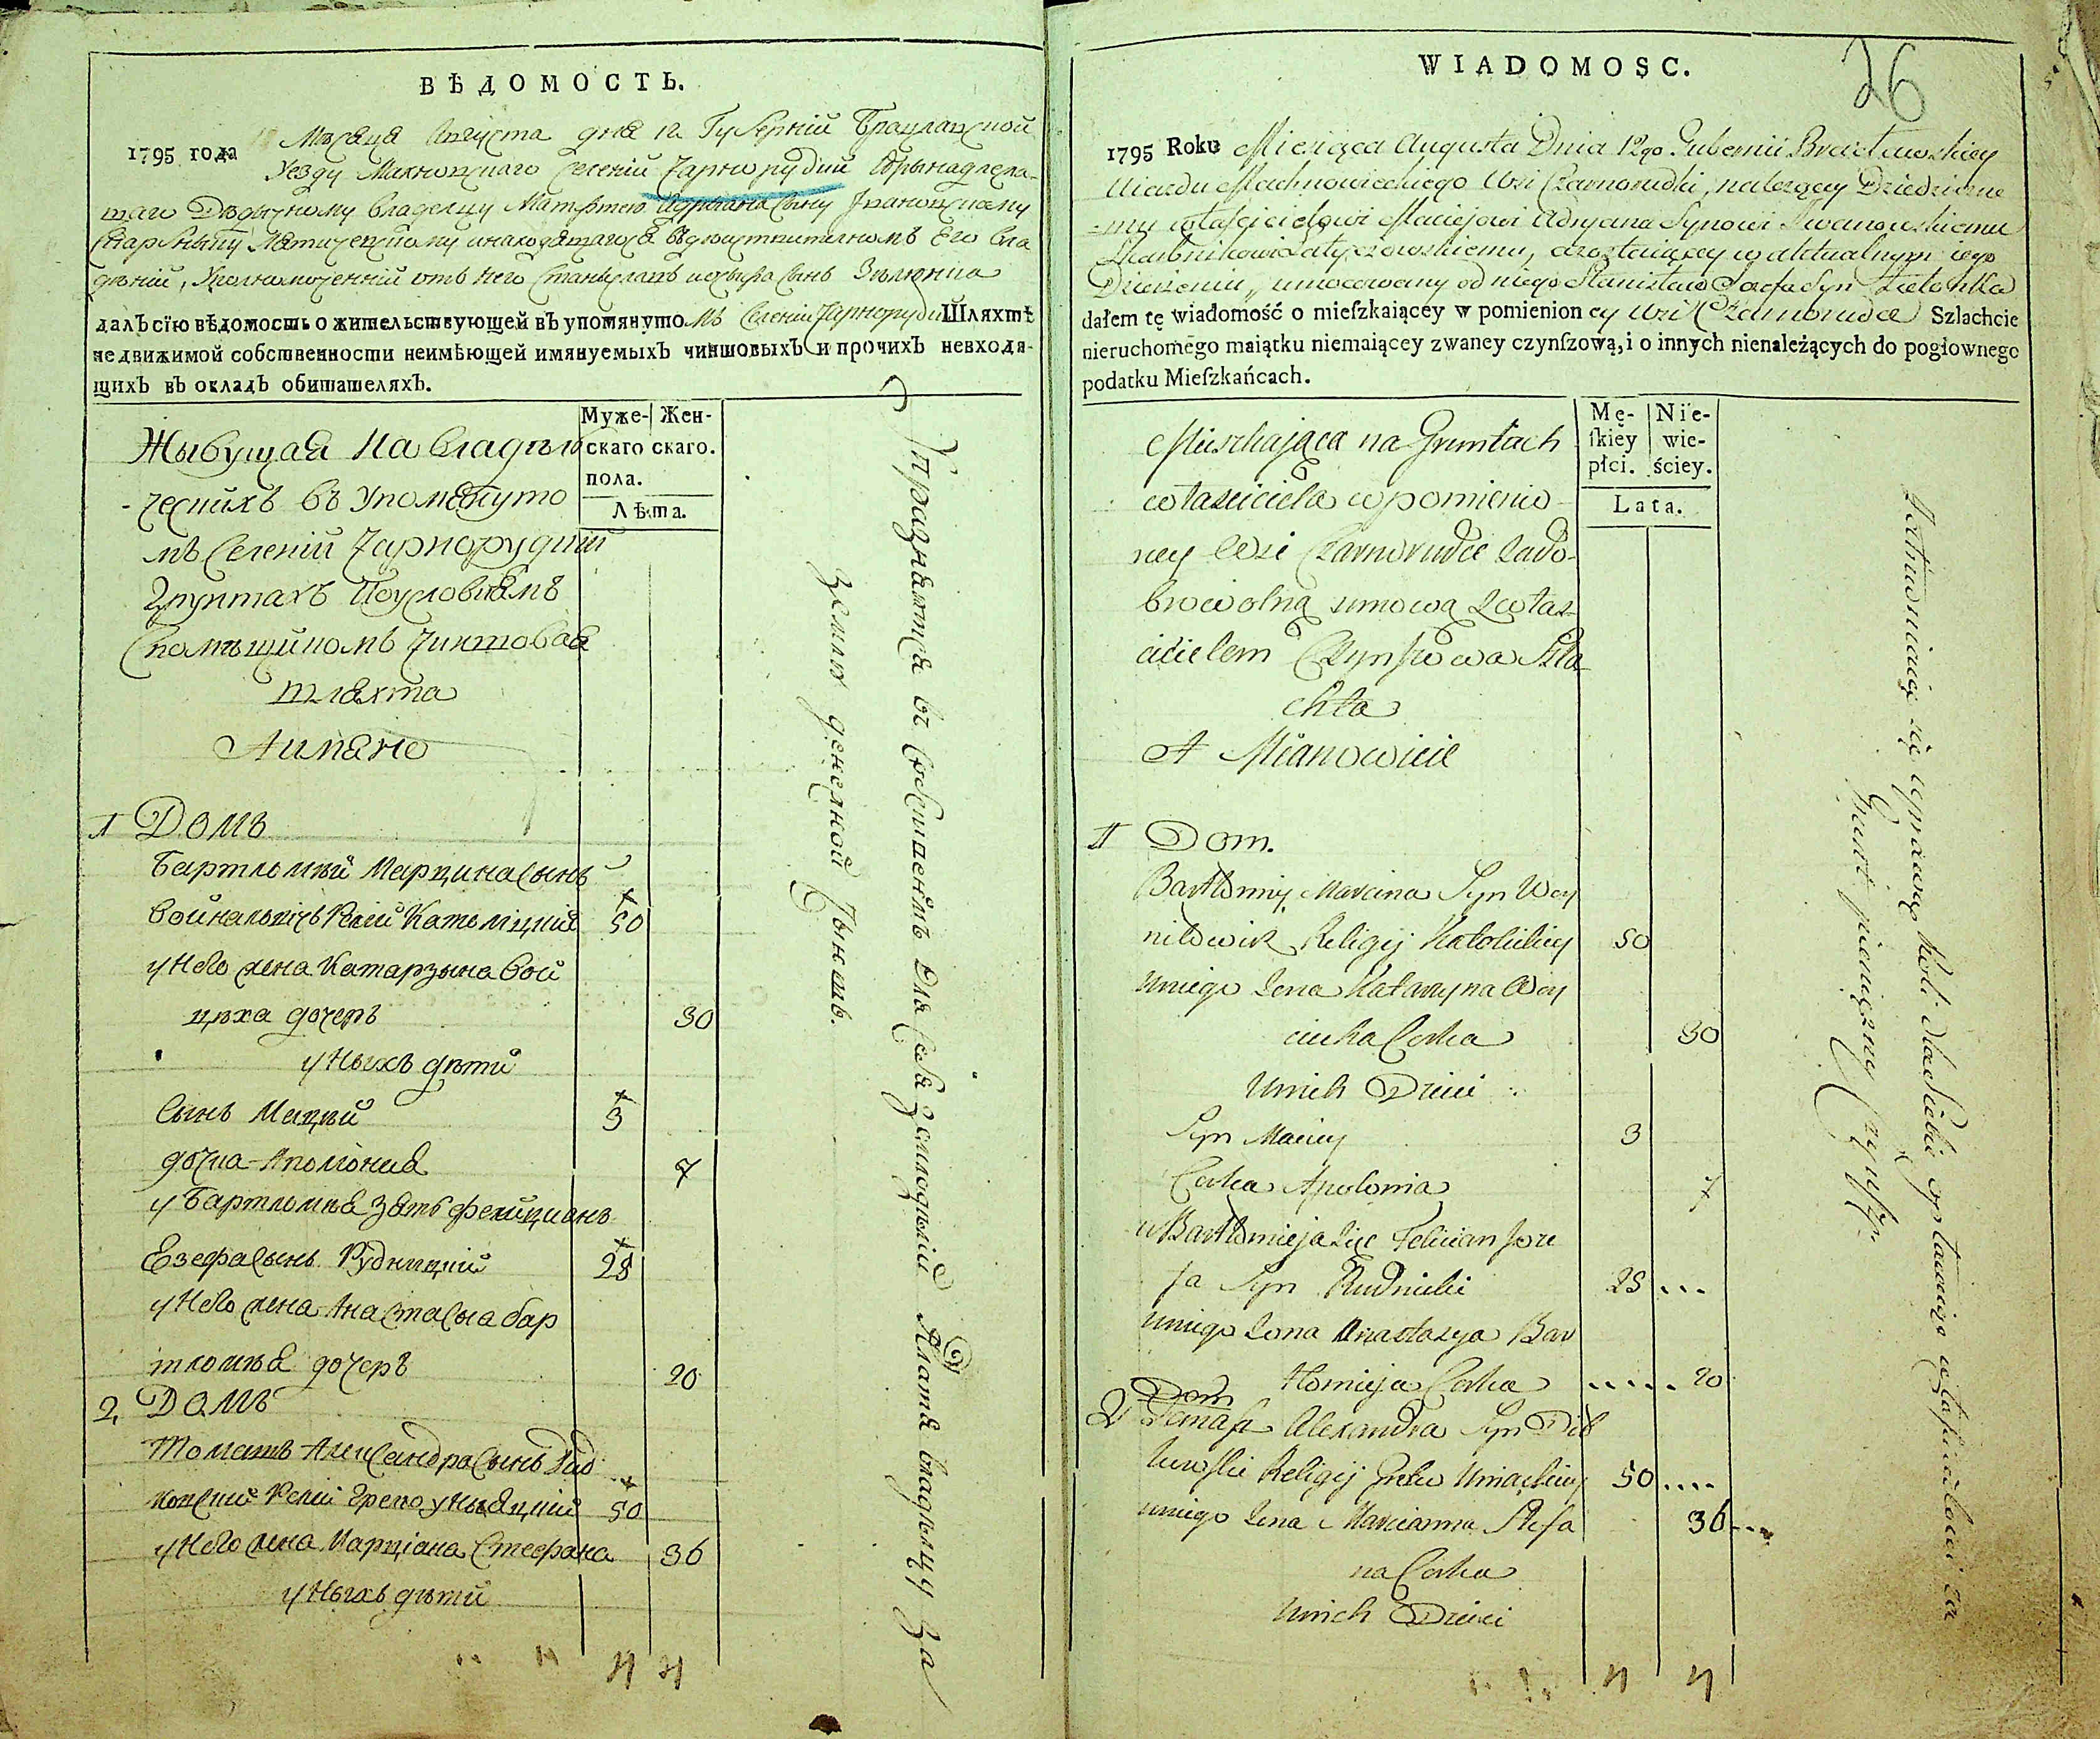 ВѢДОМОСТЬ.
1795 года Мѣсяца Августа дня 12 Губерніи Брацлавской
Уезду Махновскаго Селенія Чарнорудки принадлежа-
щаго Дѣдичному владелцу Матѣею Адриана сыну Ивановскому
Скарбнику Лѣтичевскому инаходящагося вдѣйствителномъ Его вла
дѣніи, Уполномоченній отъ него Станиславъ Иозефа сынъ Зѣлонка
далъ сїю вѣдомость о жительствующей въ упомянуто мъ Селеніи Чарнорудки Шляхтѣ
недвижимой собственности неимѣющей имянуемыхъ чиншовыхъ и прочихъ невходя-
щихъ въ окладъ обитателяхъ.
Муже- Жен-
скаго скаго.
пола.
Лѣта.
Жывущая На владѣл
-ческихъ въ Упомянуто
мъ Селеніи Чарнорудки
Грунтахъ Поусловіямъ
Спомѣщикомъ Чиншовая
шляхта
Аимяно
1 Домъ
Бартломѣй Марцина сынъ
Войналовичъ Релии Католицкия 50
у Него жена Катаржына Вой
цѣха дочеръ 30
у Ныхъ дѣти
Сынъ Мацѣй 3
дочка Аполония 7
у Бартломѣя зять Фелицианъ
Езефа сынъ Рудницкий 28
у Него жена Анастасыа бар
тломѣя дочеръ 20
2, Домъ
Томашъ Александра сынъ
Релии Греко униацкий 50
у Него жена Марціана Стефана 36
у Ныхъ дѣти
Упражняется въ хлебопашенстве для себя Земледѣлии Платя владѣлцу За
Землю денежной Чыншъ.
WIADOMOSC.
26
1795 Roku Miesiąca Augusta Dnia 12go Gubernii Bracławskiey
Uiazdu Machnowieckiego Wsi Czarnorudki, należącey Dziedziczne
-mu właścicielowi Maciejowi Adryana Synowi Iwanowskiemu
Skarbnikowi Latyczowskiemu, a zostaiącey w aktualnym iego
Dzierżeniu, umocowany od niego Stanisław Jozefa Syn Zielonka
dałem tę wiadomość o mieſzkaiącey w pomienion ey Wsi Czarnorudce Szlachcie
nieruchomego maiątku niemaiącey zwaney czynſzową, i o innych nienależących do pogłownego
podatku Mieſzkańcach.
Mę- Nie-
ſkiey wie-
płci. ściey.
Lata.
Mieszkaiąca na Gruntach
właściciela w pomienio-
ney Wsi Czarnorudce Zado-
browolną umową Zwłaś
cicielem Czynszowa Szla
chta
A Mianowicie
1 Dom.
Bartłomiy Marcina Syn Woy
niłowicz Religij Katolickiey 50
uniego Żona Katarzyna Woy
ciecha Corka 30
unich Dzieci
Syn Maciey 3
Corka Apolonia 7
u Bartłomieja Zięć Felician Joze
fa Syn Rudnicki 28 ...
uniego Żona Anastazya Bar
tłomieja Corka ..... 20
2 Dom
Tomasz Alexandra Syn Dił
kowski Religij Greko Uniackiey 50 ....
uniego Żona Marcianna Stefa 36 ...
na Corka
unich Dzieci
Zatrudniaią się uprawą Roli dla Siebie opłacaiąc właścicielowi za
Grunt pieniężny Czynsz.